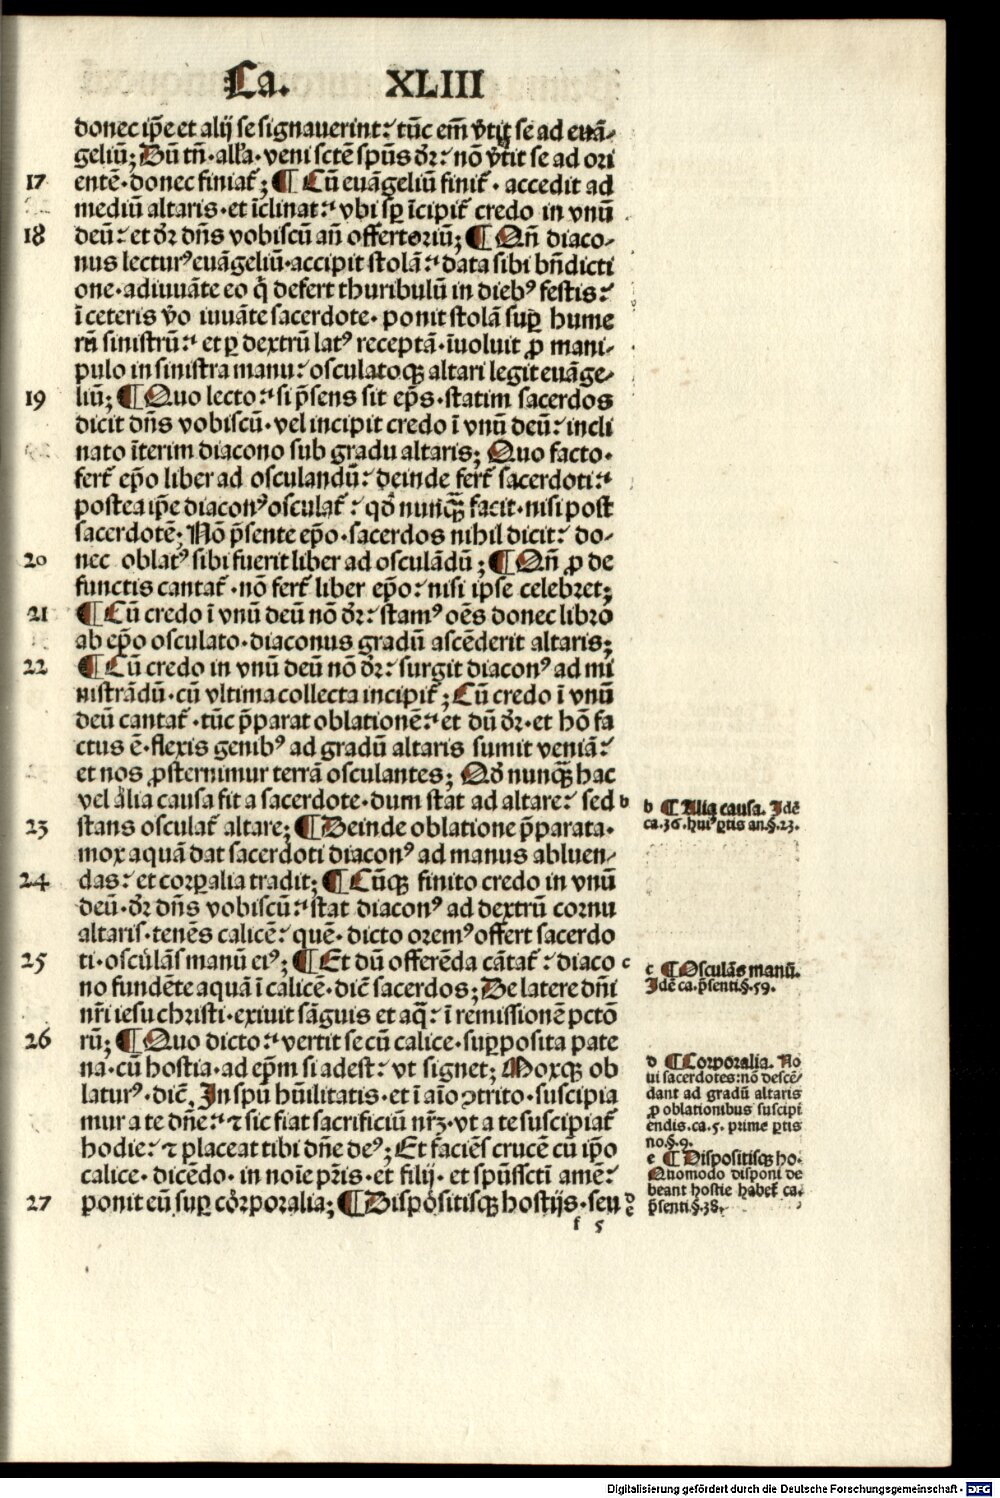 Ca. XLIII
donec ip̄e et alij se signauerint: tūc em̄ v̄tit se ad euā-
geliū; Dū tn̄ · all'a · veni sctē sp̄us dr̄: nō v̄tit se ad ori
17 entē · donec finiat̄; ¶ Cū euāgeliū finit̄ · accedit ad
mediū altaris · et īclinat: vbi sp̄ īcipit̄ credo in vnū
18 deū: et dr̄ dn̄s vobiscū an̄ offertoriū; ¶ Qn̄ diaco-
nus lecturꝰ euāgeliū · accipit stolā: data sibi bn̄dicti
one · adiuuāte eo q̄ defert thuribulū in diebꝰ festis:
ī ceteris v̄o iuuāte sacerdote · ponit stolā suꝑ hume
rū sinistrū: et ꝑ dextrū latꝰ receptā · īuoluit ꝓ mani-
pulo in sinistra manu: osculatoqꝫ altari legit euāge-
19 liū; ¶ Quo lecto: si p̄sens sit ep̄s · statim sacerdos
dicit dn̄s vobiscū · vel incipit credo ī vnū deū: incli
nato īterim diacono sub gradu altaris; Quo facto ·
fert̄ ep̄o liber ad osculandū: deinde fert̄ sacerdoti:
postea ip̄e diaconꝰ osculat̄: qd̄ nunqꝫ̄ facit · nisi post
sacerdotē; Nō p̄sente ep̄o · sacerdos nihil dicit: do-
20 nec oblatꝰ sibi fuerit liber ad osculādū; ¶ Qn̄ ꝓ de
functis cantat̄ · nō fert̄ liber ep̄o: nisi ipse celebret;
21 ¶ Cū credo ī vnū deū nō dr̄: stamꝰ oēs donec libro
ab ep̄o osculato · diaconus gradū ascēderit altaris;
22 ¶ Cū credo in vnū deū nō dr̄: surgit diaconꝰ ad mi
nistrādū · cū vltima collecta incipit̄; Cū credo ī vnū
deū cantat̄ · tūc p̄parat oblationē: et dū dr̄ · et hō fa
ctus ē · flexis genibꝰ ad gradū altaris sumit veniā:
et nos ꝓsternimur terrā osculantes; Qd̄ nunqꝫ̄ hac
vel alia causa fit a sacerdote · dum stat ad altare: sed b
23 stans osculat̄ altare; ¶ Deinde oblatione p̄parata ·
mox aquā dat sacerdoti diaconꝰ ad manus abluen-
24 das: et corꝑalia tradit; ¶ Cūqꝫ finito credo in vnū
deū · dr̄ dn̄s vobiscū: stat diaconꝰ ad dextrū cornu
altaris · tenēs calicē: quē · dicto oremꝰ offert sacerdo
25 ti · osculās manū eiꝰ; ¶ Et dū offerēda cātat̄: diaco c
no fundēte aquā ī calicē · dic̄ sacerdos; De latere dn̄i
nr̄i iesu christi · exiuit sāguis et aq̄: ī remissionē pctō
26 rū; ¶ Quo dicto: vertit se cū calice · suꝑposita pate
na · cū hostia · ad ep̄m si adest: vt signet; Moxqꝫ ob
laturꝰ · dic̄. In spū hūilitatis · et ī aīo ꝯtrito · suscipia
mur a te dn̄e: ⁊ sic fiat sacrificiū nr̄ꝫ · vt a te suscipiat̄
hodie: ⁊ placeat tibi dn̄e deꝰ; Et faciēs crucē cū ip̄o
calice · dicēdo · in noīe pr̄is · et filij · et spūsscti amē:
27 ponit eū suꝑ corꝑoralia; ¶ Dispositisqꝫ hostijs · seu d e
f 5
b ¶ Alia causa. Idē
ca. 36. huiꝰ ꝑtis an̄. §. 23.
c ¶ Osculās manū.
Idē ca. p̄senti. §. 59.
d ¶ Corporalia. No
ui sacerdotes: nō descē-
dant ad gradū altaris
ꝓ oblationibus suscipi
endis. ca. 5. prime ꝑtis
no. §. 9.
e ¶ Dispositisqꝫ ho.
Quomodo disponi de
beant hostie habet̄ ca.
p̄senti. §. 38.
Digitalisierung gefördert durch die Deutsche Forschungsgemeinschaft · DFG